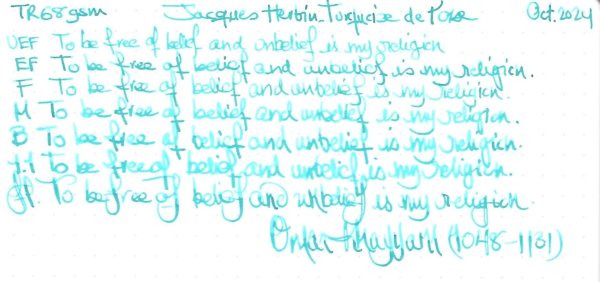 TR68gsm Jacques Herbin Turquoise de Perse Oct. 2024
UEF To be free of belief and unbelief is my religion
EF To be free of belief and unbelief is my religion.
F To be free of belief and unbelief is my religion.
M To be free of belief and unbelief is my religion.
B To be free of belief and unbelief is my religion.
1.1 To be free of belief and unbelief is my religion.
To be free of belief and unbelief is my religion.
Omar Khayyam (1048-1131)